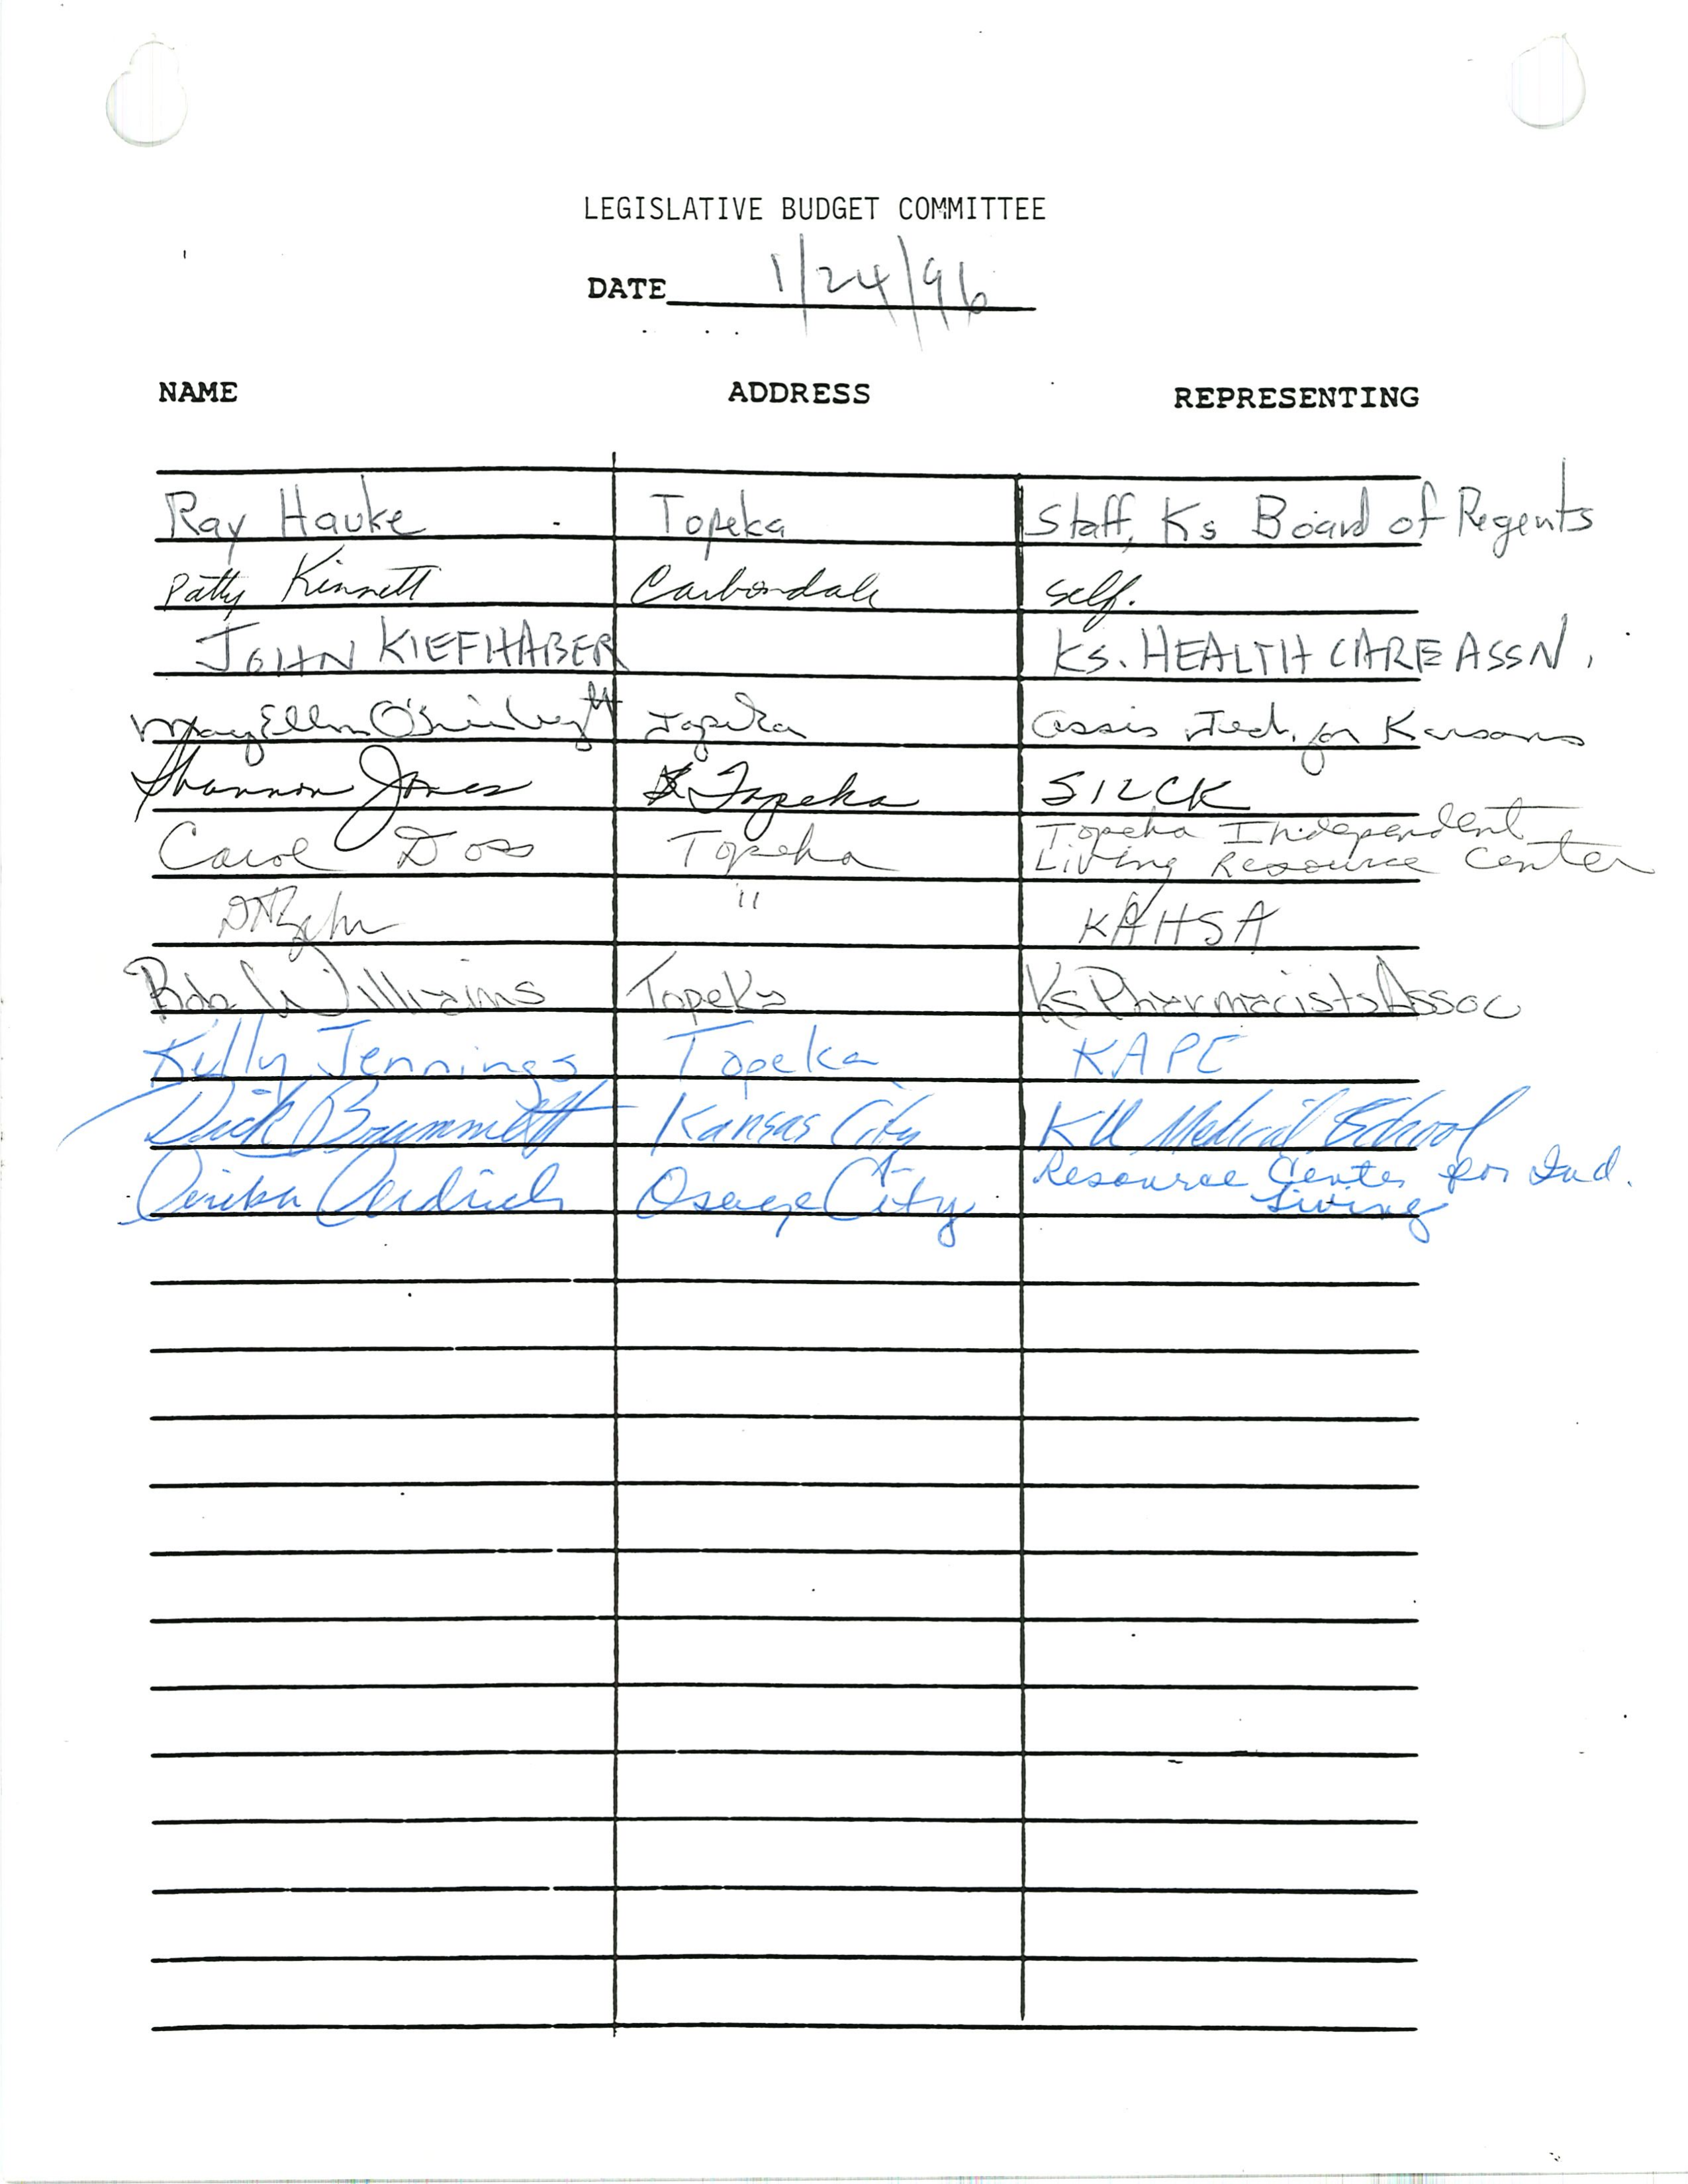 LEGISLATIVE BUDGET COMMITTEE
DATE 1/24/96
NAME ADDRESS REPRESENTING
Ray Hauke Topeka Staff, Ks Board of Regents
Patty Kinnett Carbondale Self.
JOHN KIEFHABER KS. HEALTH CARE ASSN.
Mary Ellen Topeka Assis Tech. for Kansans
Shannon Jones Topeka SILCK
Carol Doss Topeka Topeka Independent
Living Resource Center
" KAHSA
Bob Williams Topeka Ks Pharmacists Assoc
Kelly Jennings Topeka KAPE
Dick Brummett Kansas City KU Medical School
Osage City Resource Center for Ind.
Living